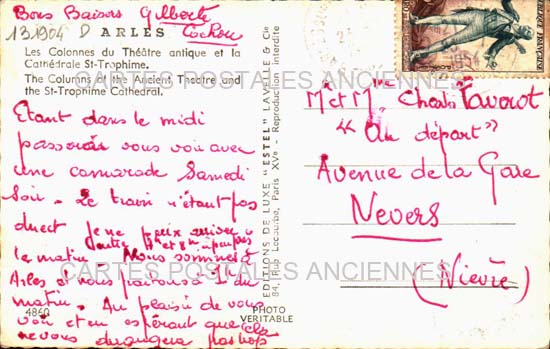 Bons Baisers Gilberte
131904 D ARLES Cochou
Les Colonnes du Théâtre antique et la
Cathédrale St-Trophime.
The Columns of the Ancient Theatre and
the St-Trophime Cathedral.
Etant dans le midi
passerais vous voir avec
une camarade Samedi
soir - Le train n'étant pas
direct je ne peux arriver
le matin Nous sommes à
Arles et nous partons à 1h du
matin. Au plaisir de vous
voir et en espérant que cela
ne vous dérangera pas trop
4860
PHOTO
VERITABLE
EDITIONS DE LUXE "ESTEL" LAVELLE & Cie
84, Rue Lecourbe, Paris XVe - Reproduction interdite
REPUBLIQUE FRANÇAISE
Mr et Mme Charles Favorot
"Au départ"
Avenue de la Gare
Nevers
(Nièvre)
CARTES POSTALES ANCIENNES
CARTES POSTALES ANCIENNES